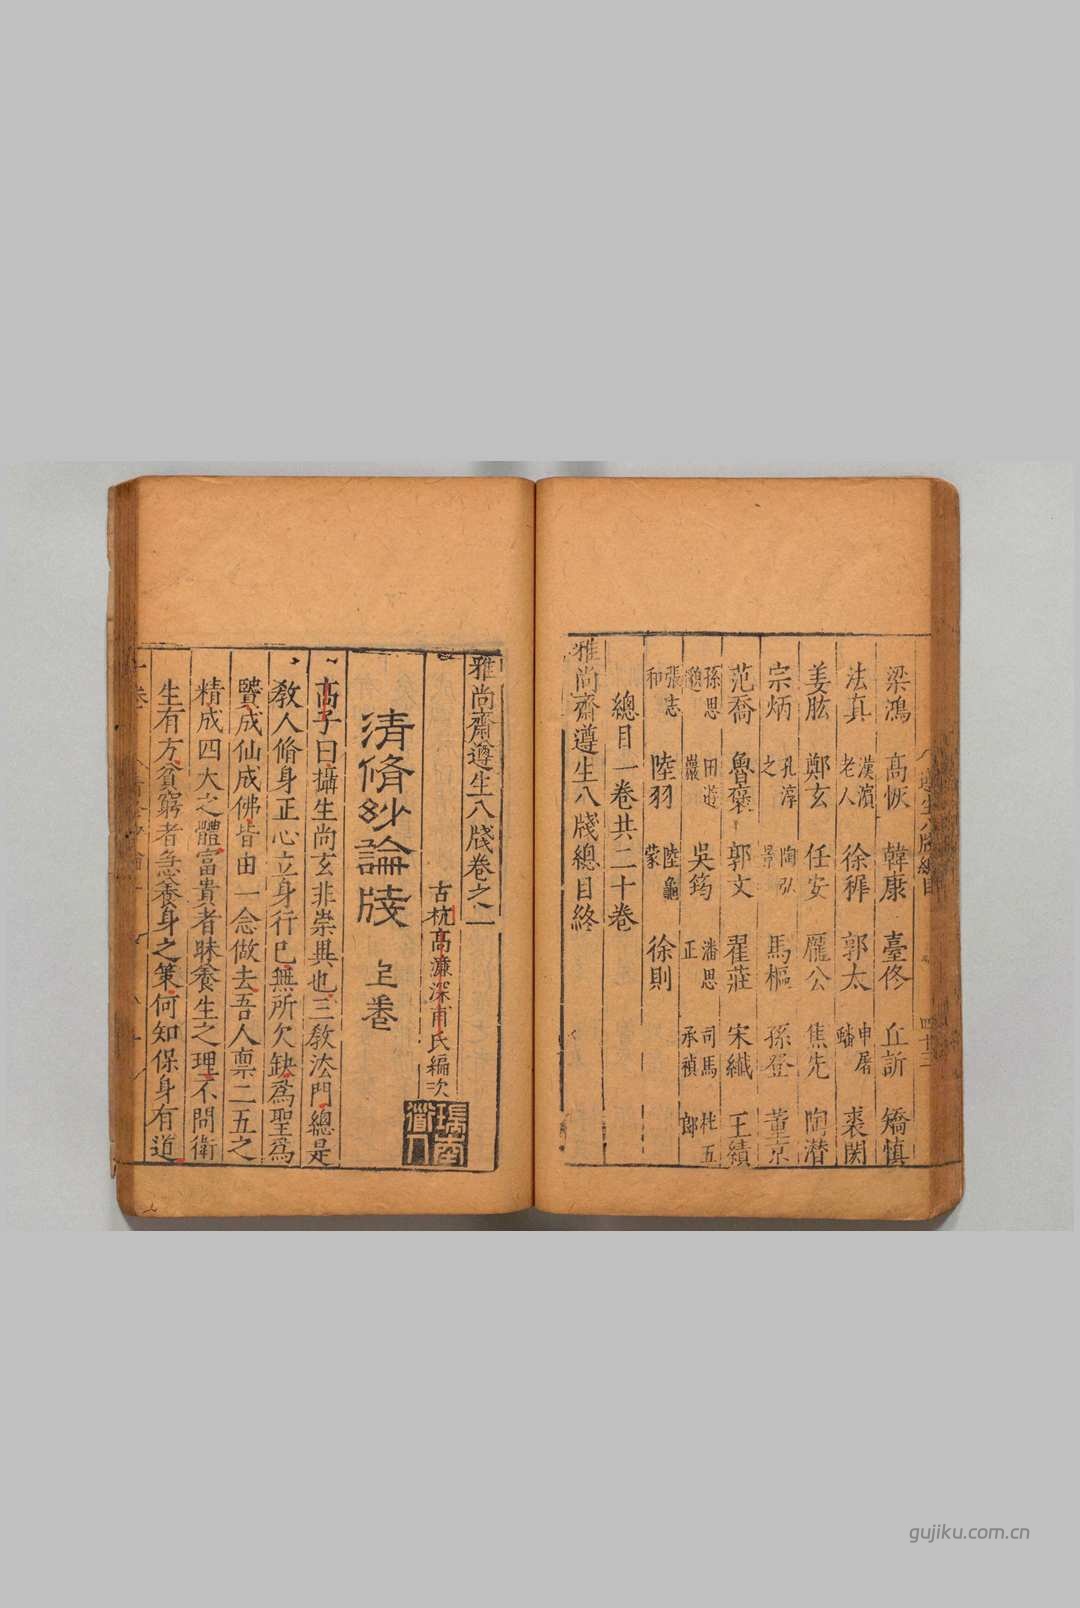 梁鴻 高恢 韓康 臺佟 丘訢 矯慎
法真 漢濱老人 徐穉 郭太 申屠蟠 袁閎
姜肱 鄭玄 任安 龐公 焦先 陶潛
宗炳 孔淳之 陶弘景 馬樞 孫登 董京
范喬 魯褒 郭文 翟莊 宋纖 王績
孫思邈 田遊巖 吳筠 潘思正 司馬承禎 杜五郎
張志和 陸羽 陸龜蒙 徐則
總目一卷共二十卷
雅尚齋遵生八牋總目終
雅尚齋遵生八牋卷之一
古杭高濂深甫氏編次
瑞南道人
清脩玅論牋 上卷
高子曰攝生尚玄非崇異也三教法門總是
教人脩身正心立身行己無所欠缺爲聖爲
賢成仙成佛皆由一念做去吾人禀二五之
精成四大之體富貴者昧養生之理不問衛
生有方貧窮者急養身之策何知保身有道
gujiku.com.cn